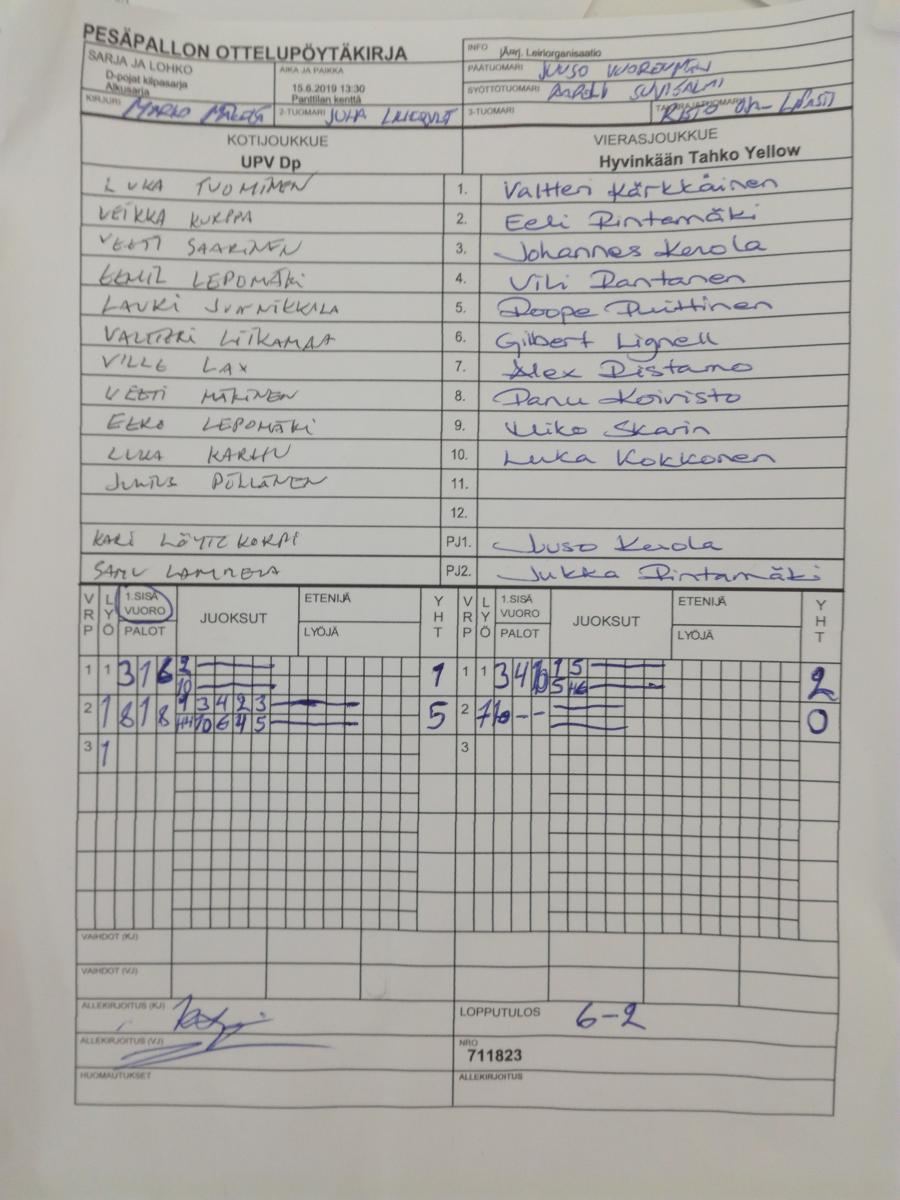 PESÄPALLON OTTELUPÖYTÄKIRJA
INFO jÄrj. Leiriorganisaatio
SARJA JA LOHKO
D-pojat kilpasarja
Alkusarja
AIKA JA PAIKKA
15.6.2019 13:30
Panttilan kenttä
PÄÄTUOMARI JUUSO
SYÖTTÖTUOMARI
KIRJURI MARKO
2-TUOMARI JUHA
3-TUOMARI
RISTO
KOTIJOUKKUE
UPV Dp
VIERASJOUKKUE
Hyvinkään Tahko Yellow
LUKA TUOMINEN 1. Valtteri Kärkkäinen
VEIKKA KURPPA 2. Eeli Rintamäki
VEETI SAARINEN 3. Johannes Kerola
EEMIL LEPOMÄKI 4. Vili Rantanen
LAURI JUNNIKKALA 5. Roope Ruittinen
VALTTERI LIIKAMAA 6. Gilbert Lignell
VILLE LAX 7. Alex Ristamo
VEETI MÄKINEN 8. Panu Koivisto
EERO LEPOMÄKI 9. Miko Skarin
LUKA KARHU 10. Luka Kokkonen
JULIUS PÖLLÄNEN 11.
12.
KARI LÖYTTYKORPI PJ1. Juuso Kerola
SAMU LAMMELA PJ2. Jukka Rintamäki
VRP LYÖ 1.SISÄ VUORO PALOT JUOKSUT ETENIJÄ LYÖJÄ YHT VRP LYÖ 1.SISÄ VUORO PALOT JUOKSUT ETENIJÄ LYÖJÄ YHT
1 1 3 1 6 2 1 1 1 3 4 10 1 5 2
10 5
2 1 8 1 8 1 3 4 2 3 5 2 7 0
10 6 4 5
3 1 3
VAIHDOT (KJ)
VAIHDOT (VJ)
ALLEKIRJOITUS (KJ)
LOPPUTULOS 6-2
ALLEKIRJOITUS (VJ)
NRO
711823
HUOMAUTUKSET
ALLEKIRJOITUS